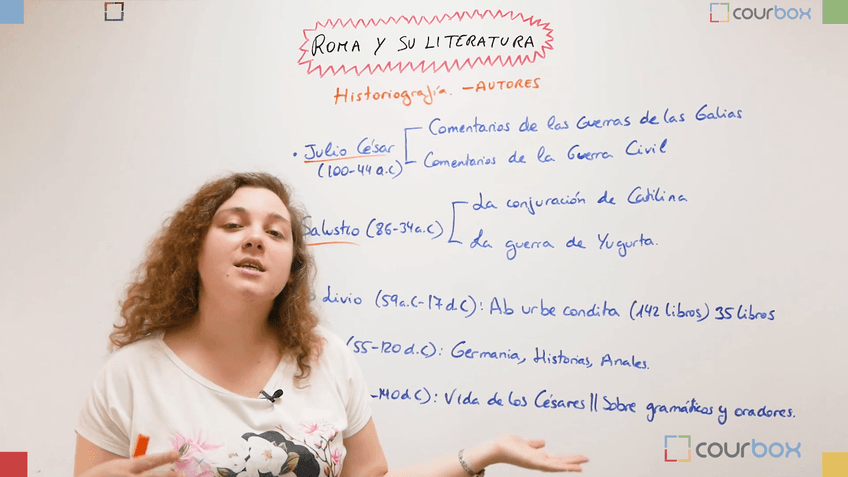 courbox
ROMA Y SU LITERATURA
Historiografía. - AUTORES
• Julio César
(100-44 a.c)
Comentarios de las Guerras de las Galias
Comentarios de la Guerra Civil
Salustio (86-34a.c)
La conjuración de Catilina
La guerra de Yugurta.
Livio (59a.C-17 d.C): Ab urbe condita (142 libros) 35 libros
(55-120 d.C): Germania, Historias, Anales.
-140 d.C): Vida de los Césares || Sobre gramáticos y oradores.
courbox